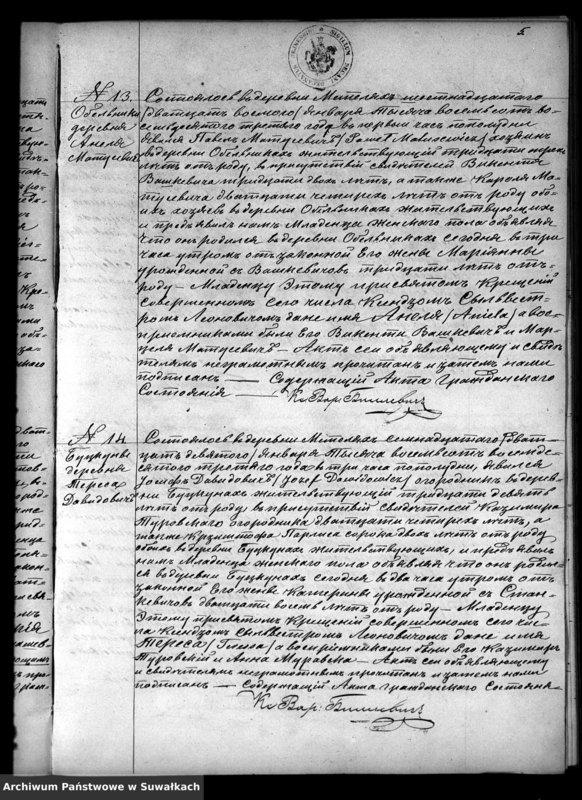 5
N 13.
Обелники
деревня
Анеля
Матусевичъ
Состоялось въ деревни Метеляхъ шестнадцатаго
/двадцать восьмого/ Января Тысяча восемьсотъ во-
семьдесятого третьяго года въ первый часъ пополудни
Явился Павелъ Матусевичъ / Paweł Matusewicz / хозяинъ
въ деревни Обельникахъ жительствующій тридцати
лѣтъ отъ роду, въ присутствіи свидѣтелей Викентія
Вашкевича тридцати двохъ лѣтъ, а также Кароля Ма-
тулевича двадцати четирехъ лѣтъ отъ роду обо-
ихъ хозяевъ въ деревни Обельникахъ жительствующихъ
и предъявилъ намъ Младенца женскаго пола объявляя
что онъ родился въ деревни Обельникахъ сегодня въ три
часа утромъ отъ законной Его жены Маріянны
урожденной съ Вашкевичовъ тридцати лѣтъ отъ
роду — Младенцу Этому при святомъ Крещеніи
совершенномъ сего числа Ксендзомъ Сильвест-
ромъ Леоновичомъ дане имя Анеля / Aniela / а вос-
приемниками были Его Викенти Вашкевичъ и Мар-
целя Матусевичъ — Актъ сей объявляющему и свидѣ-
телямъ неграмотнымъ прочитанъ и затемъ нами
подписанъ — Содержащій Акта Гражданскаго
Состоянія —
N 14
Буцкуне
деревня
Тереса
Давидовичъ
Состоялось въ деревни Метеляхъ семнадцатаго /двад-
цать девятого/ Января Тысяча восемьсотъ восемде-
сятого третьяго года въ три часа пополудни, явился
Іосифъ Давидовичъ / Józef Dawidowicz / огородникъ въ дерев-
ни Буцкунахъ жительствующій тридцати девяти
лѣтъ отъ роду въ присутствіи свидѣтелей Казимира
Туровскаго огородника двадцати четирехъ лѣтъ, а
также Криштофа сорока двохъ лѣтъ отъ роду
обоихъ въ деревни Буцкунахъ жительствующихъ, и предъявилъ
намъ Младенца женскаго пола объявляя что онъ родил-
ся въ деревни Буцкунахъ сегодня въ два часа утромъ отъ
законной Его жены Катерины урожденной съ Стан-
кевичовъ двадцати восемъ лѣтъ отъ роду — Младенцу
Этому при святомъ Крещеніи совершенномъ сего чис-
ла Ксендзомъ Сильвестромъ Леоновичомъ дане имя
Тереса / а восприемниками были Его Казимиръ
Туровскій и Анна Муравска — Актъ сей объявляющему
и свидѣтелямъ неграмотнымъ прочитанъ и затемъ нами
подписанъ — Содержащій Акта Гражданскаго Состояня —
Archiwum Państwowe w Suwałkach